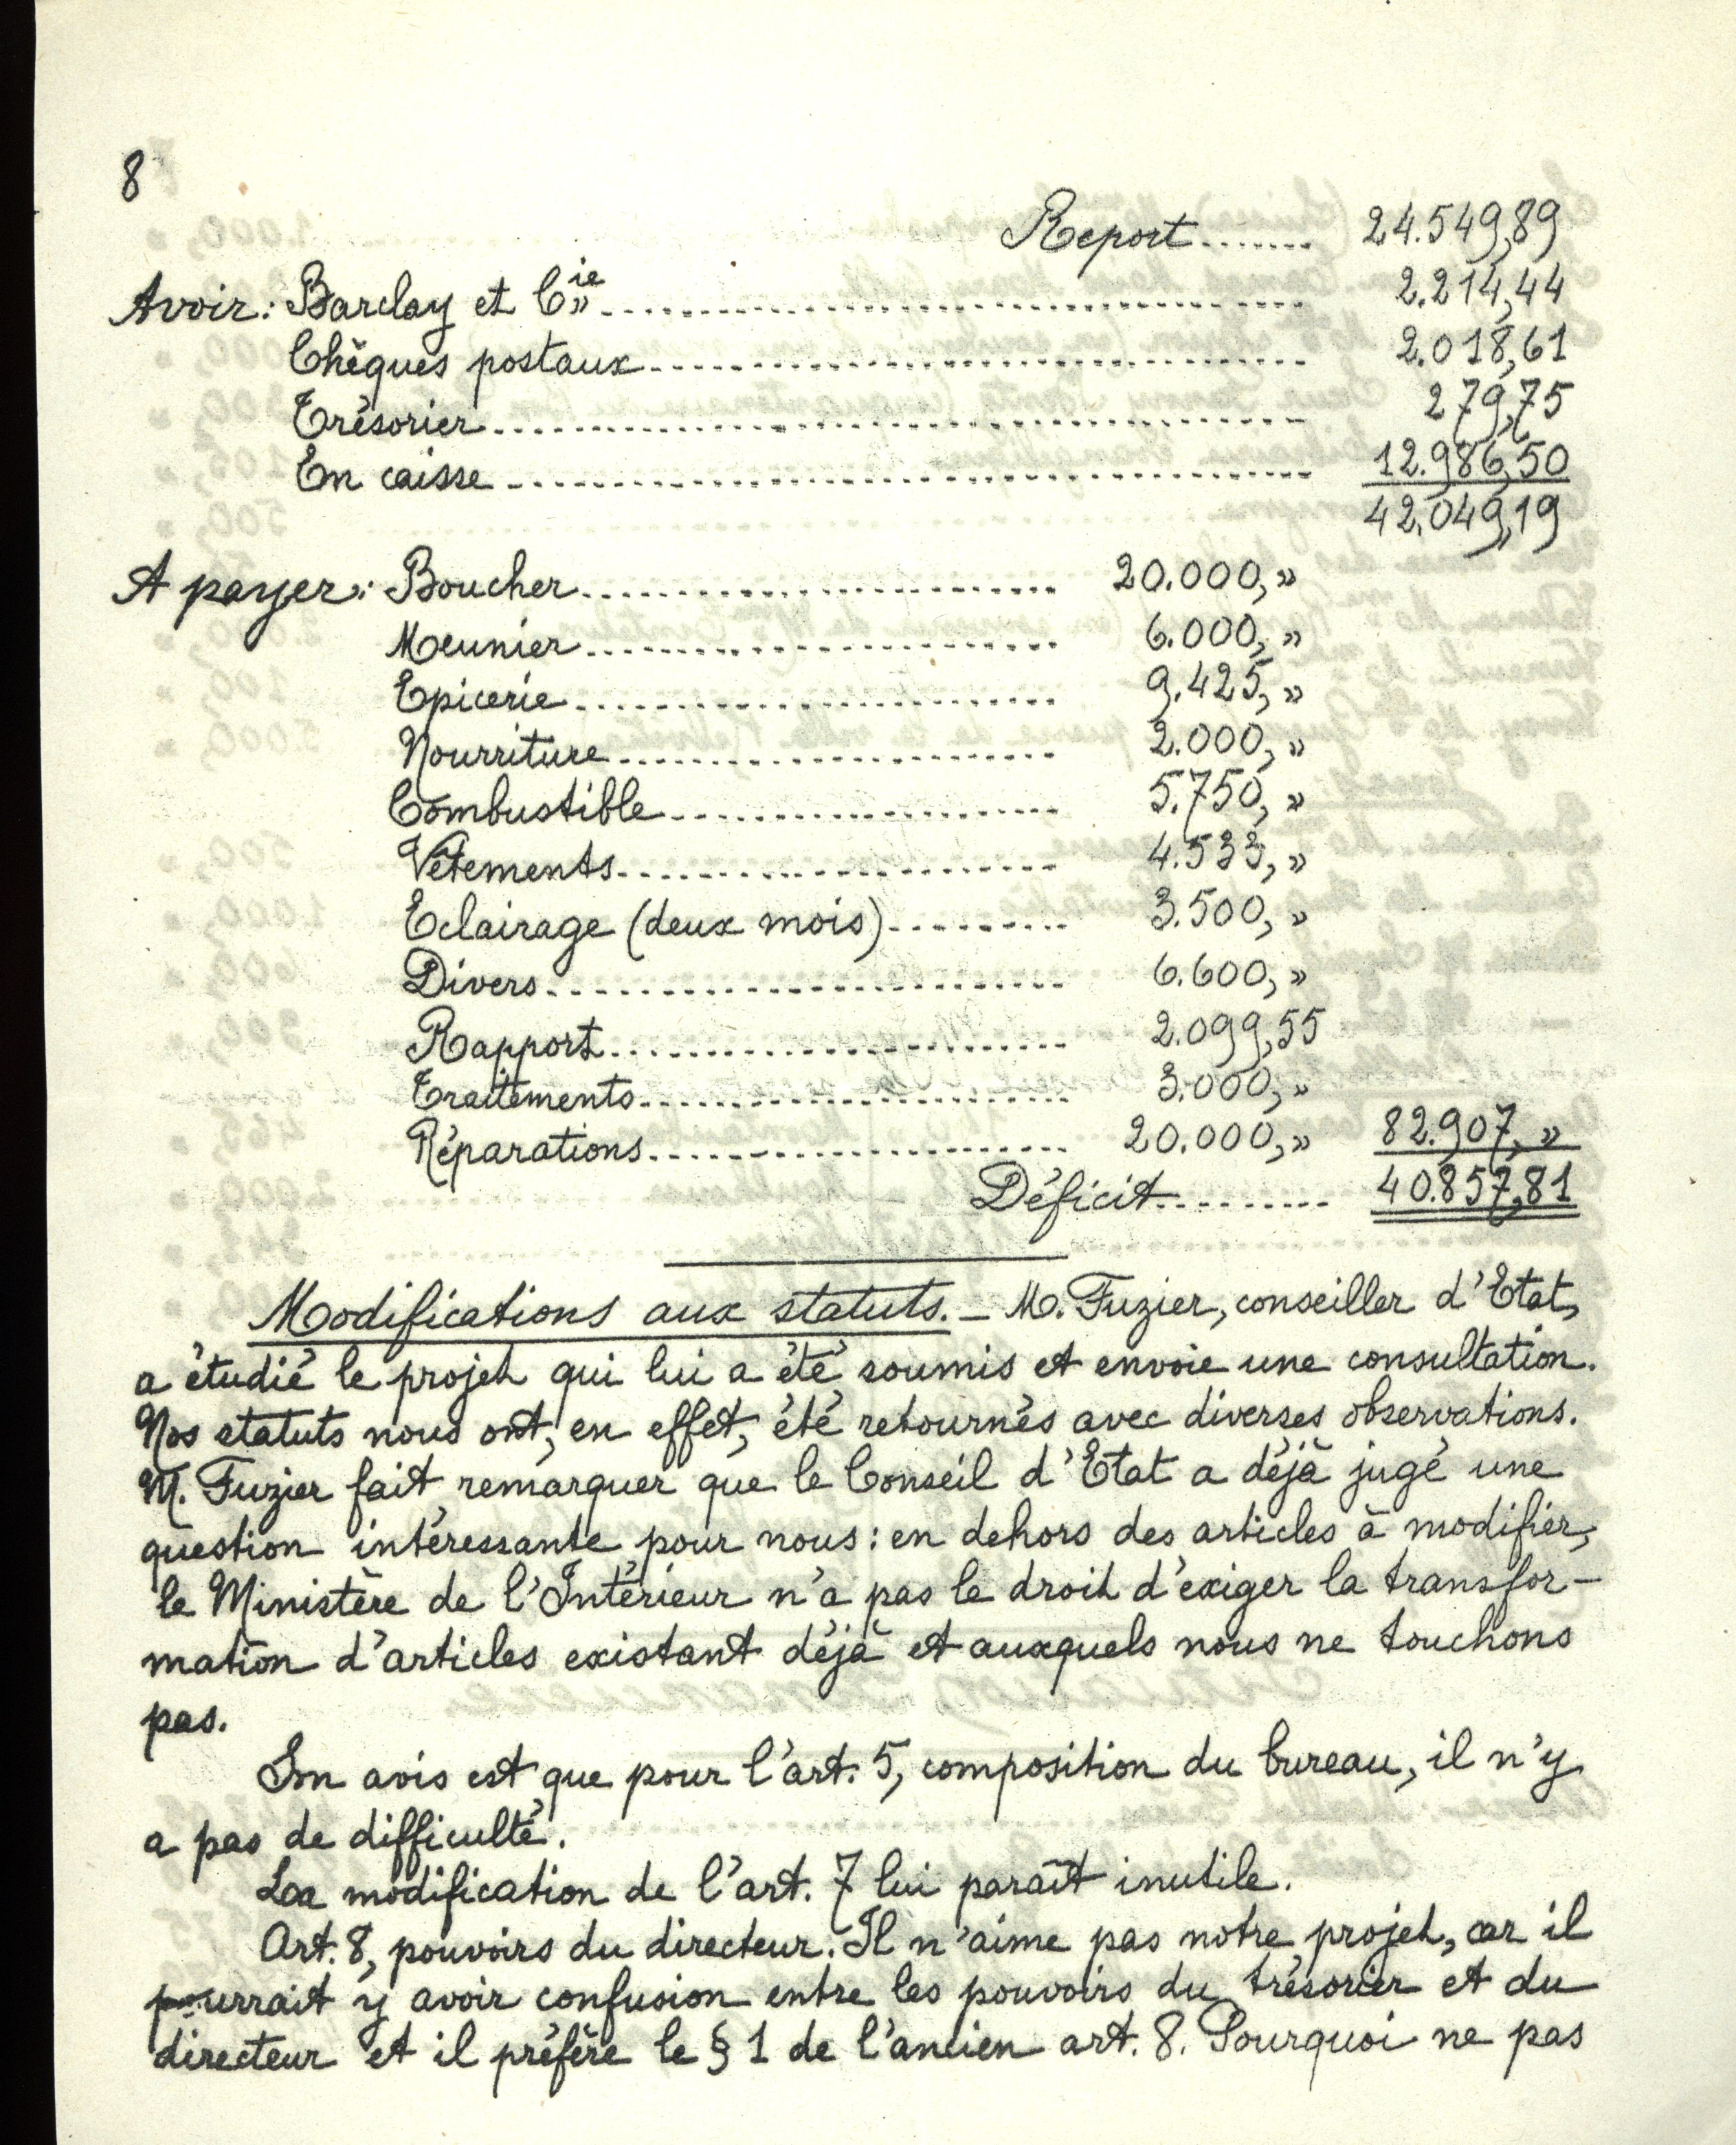 8
Report........ 24.549,89
Avoir: Barclay et Cie........ 2.214,44
Chèques postaux........ 2.018,61
Trésorier........ 279,75
En caisse........ 12.986,50
42.049,19
A payer: Boucher........ 20.000, »
Meunier........ 6.000, »
Epicerie........ 9.425, »
Nourriture........ 2.000, »
Combustible........ 5.750, »
Vêtements........ 4.533, »
Eclairage (deux mois)........ 3.500, »
Divers........ 6.600, »
Rapport........ 2.099,55
Traitements........ 3.000, »
Réparations........ 20.000, » 82.907, »
Déficit........ 40.857,81
Modifications aux statuts. – M. Fuzier, conseiller d'Etat,
a étudié le projet qui lui a été soumis et envoie une consultation.
Nos statuts nous ont, en effet, été retournés avec diverses observations.
M. Fuzier fait remarquer que le Conseil d'Etat a déjà jugé une
question intéressante pour nous : en dehors des articles à modifier,
le Ministère de l'Intérieur n'a pas le droit d'exiger la transfor-
mation d'articles existant déjà et auxquels nous ne touchons
pas.
Son avis est que pour l'art. 5, composition du bureau, il n'y
a pas de difficulté.
La modification de l'art. 7 lui paraît inutile.
Art. 8, pouvoirs du directeur. Il n'aime pas notre projet, car il
pourrait y avoir confusion entre les pouvoirs du trésorier et du
directeur et il préfère le § 1 de l'ancien art. 8. Pourquoi ne pas